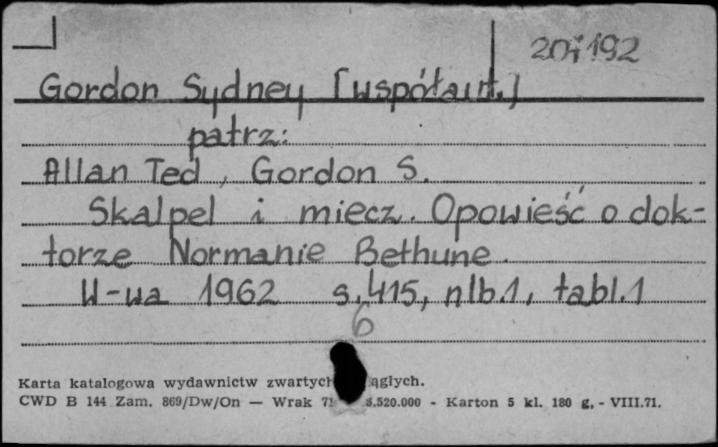 20i192
Gordon Sydney [współaut.]
patrz:
Allan Ted, Gordon S.
Skalpel i miecz. Opowieść o dok-
torze Normanie Bethune.
W-wa 1962 s.415, nlb.1, tabl.1
6
Karta katalogowa wydawnictw zwartych ągłych.
CWD B 144 Zam. 869/Dw/On — Wrak 520.000 - Karton 5 kl. 180 g. - VIII.71.